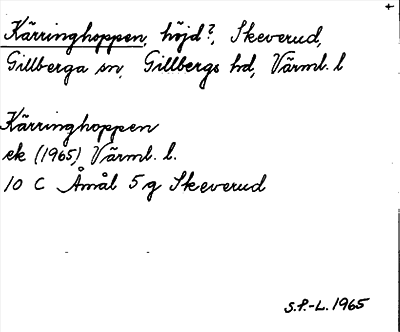 Kärringhoppen, höjd?, Skeverud,
Gillberga sn, Gillbergs hd, Värml. l
Kärringhoppen
ek (1965) Värml. l.
10 C Åmål 5 g Skeverud
S.P.-L. 1965